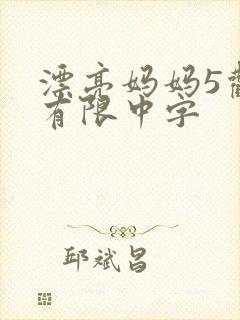 漂亮妈妈5
有限中字
邱斌昌